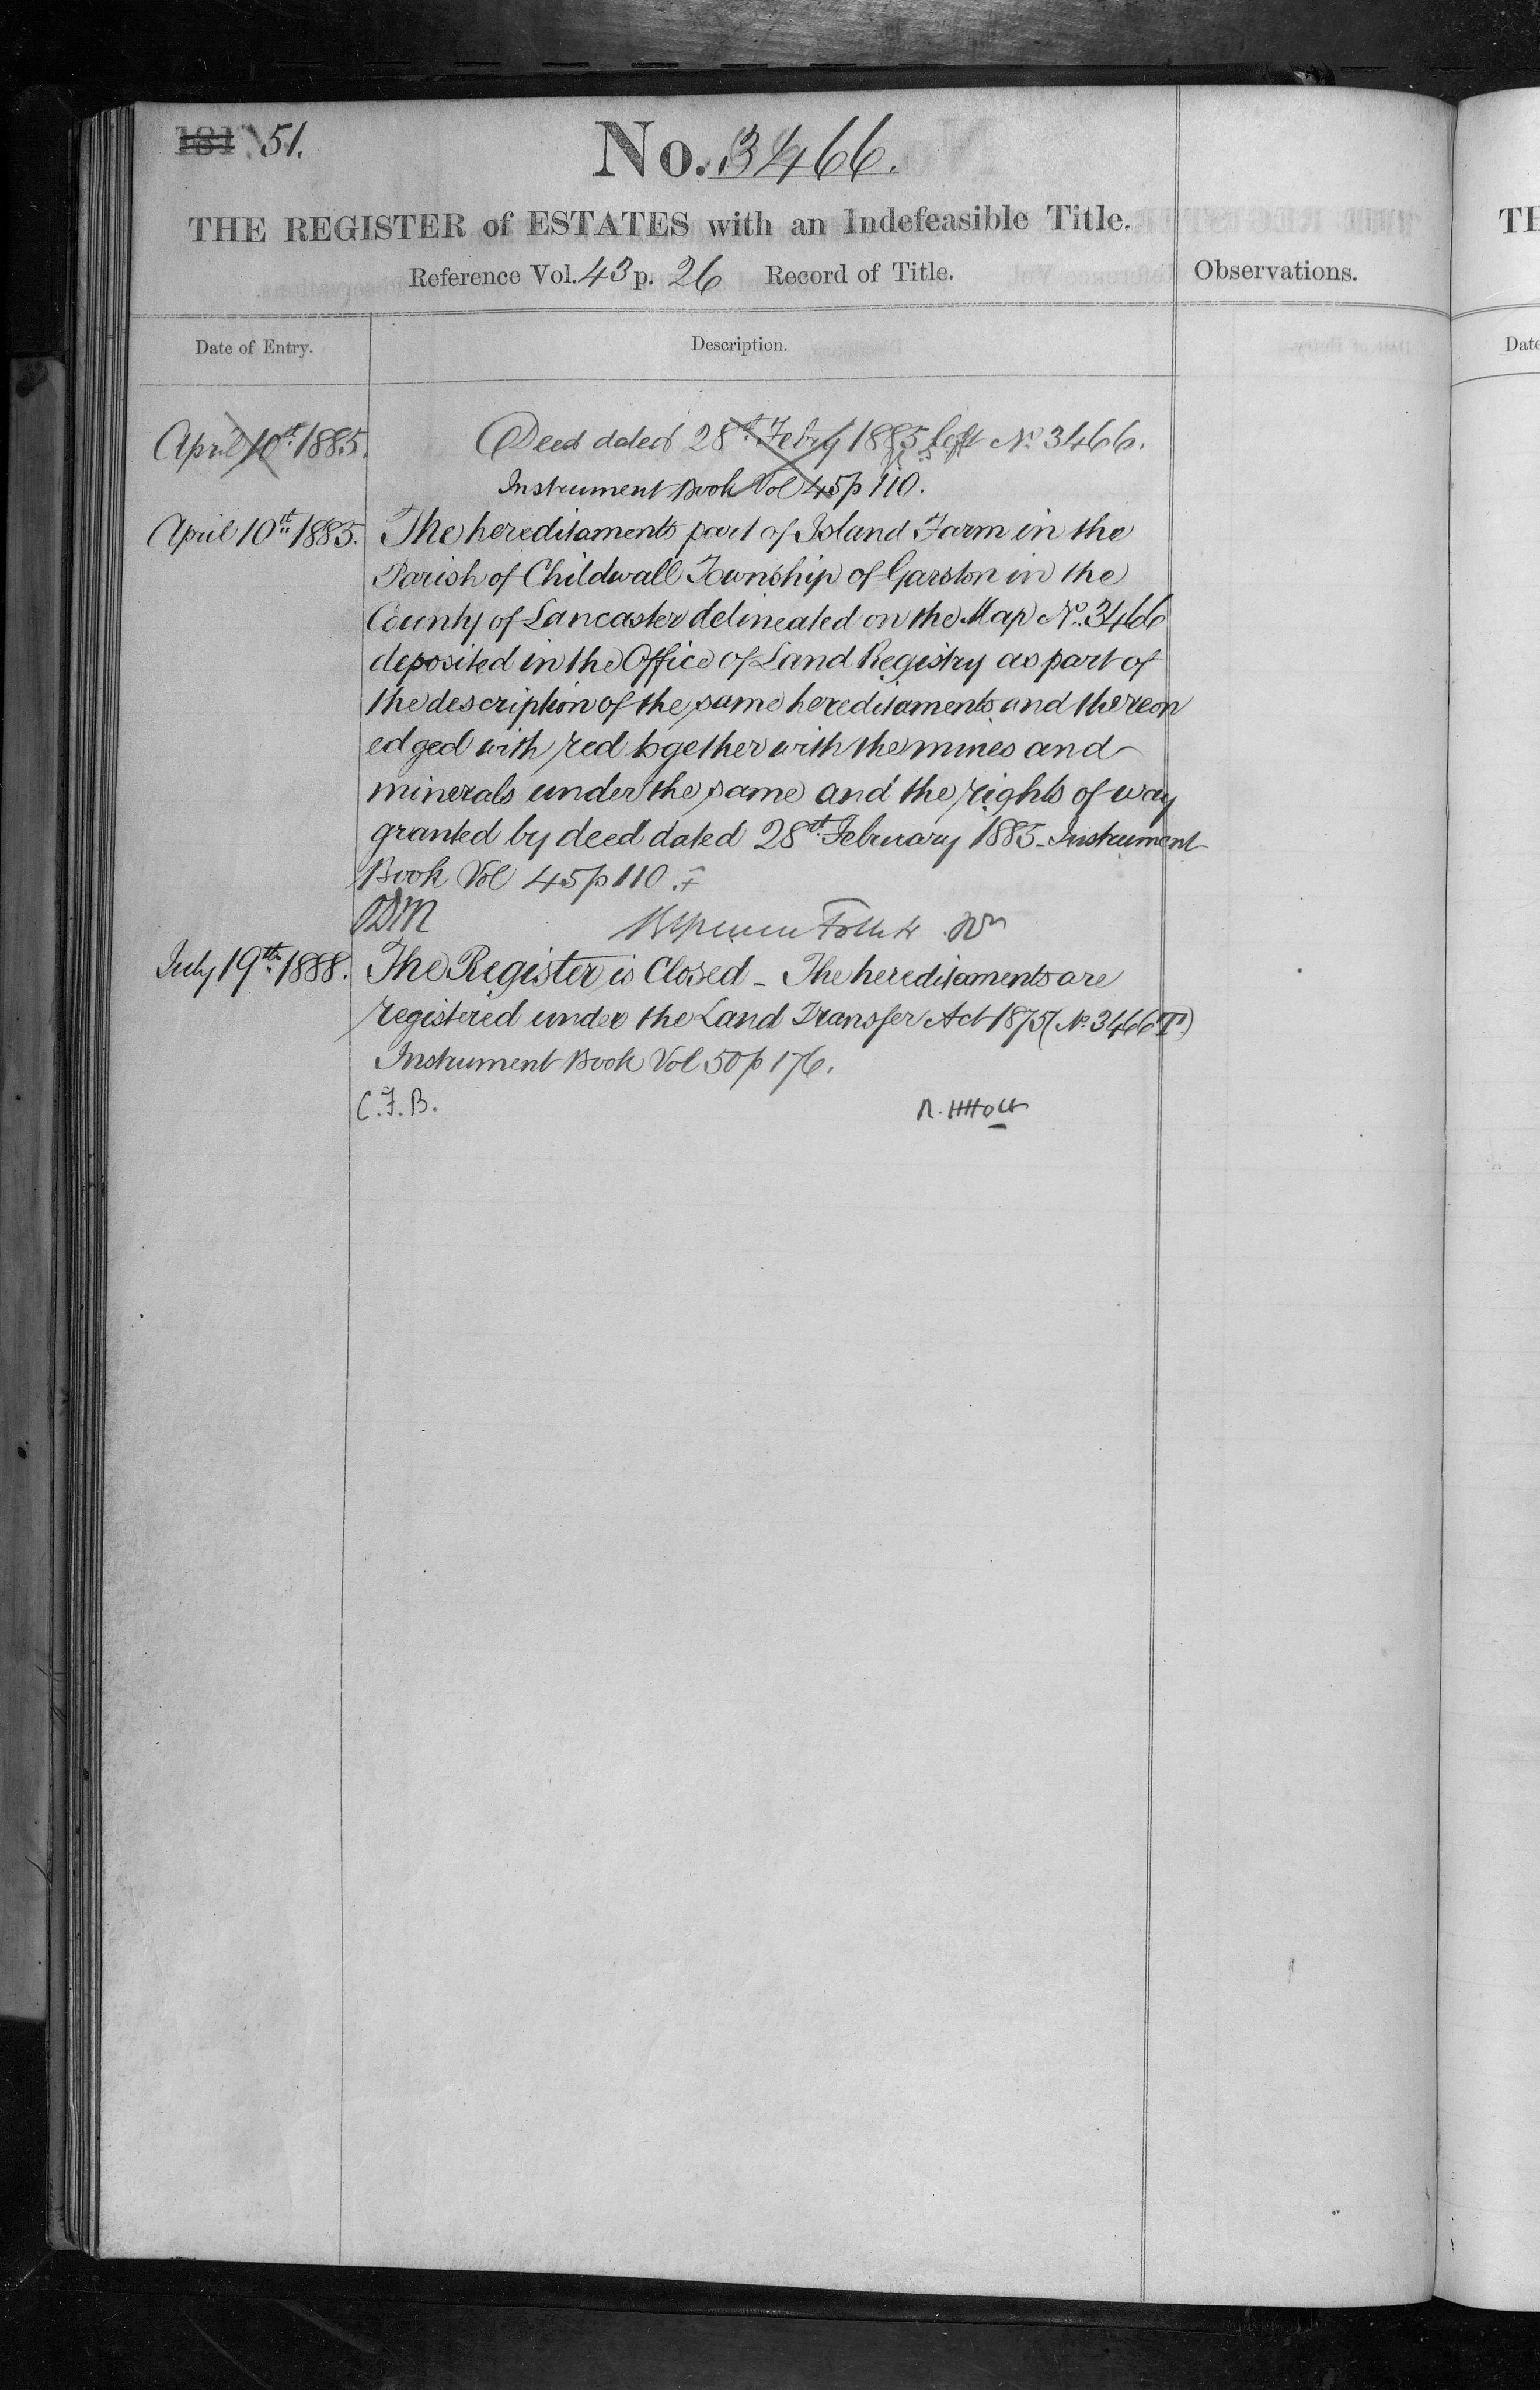 181 51.
No. 3466.
THE REGISTER of ESTATES with an Indefeasible Title.
Reference Vol. 43 p. 26 Record of Title.
Observations.
Date of Entry.
Description.
April 10th 1885.
Deed dated 28th Febry 1885 No. 3466.
Instrument Book Vol 45 p 110.
April 10th 1885.
The hereditaments part of Island Farm in the
Parish of Childwall Township of Garston in the
County of Lancaster delineated on the Map No. 3466
deposited in the Office of Land Registry as part of
the description of the same hereditaments and thereon
edged with red together with the mines and
minerals under the same and the rights of way
granted by deed dated 28th February 1885 - Instrument
Book Vol 45 p 110.
July 19th 1888.
The Register is Closed - The hereditaments are
registered under the Land Transfer Act 1875 (No. 3466 T)
Instrument Book Vol 50 p 176.
C.F.B.
R. H Holt
TH
Date